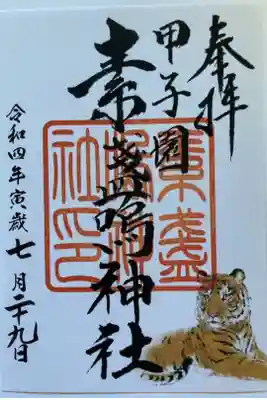 奉拝
甲子園
素盞嗚神社
令和四年寅歳七月二十九日